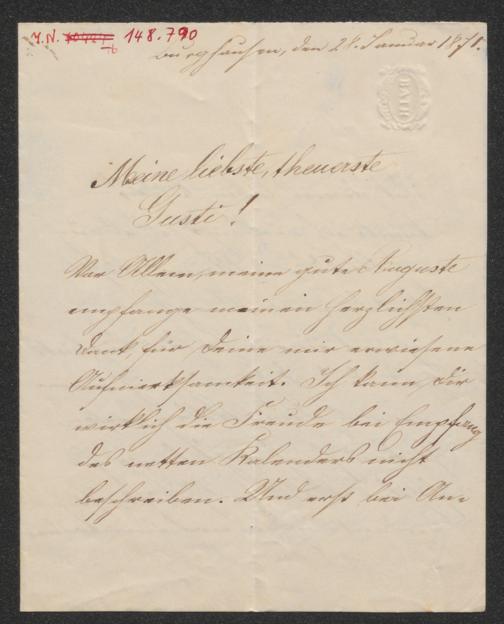 J. N. 148.790
Burghausen, den 28. Januar 1871.
BATH
Meine liebste, theuerste
Gusti!
Vor Allem, meine gute Auguste
empfange meinen herzlichsten
Dank, für Deine mir erwiesene
Aufmerksamkeit. Ich kann Dir
wirklich die Freude bei Empfang
des netten Kalenders nicht
beschreiben. Und erst bei An-